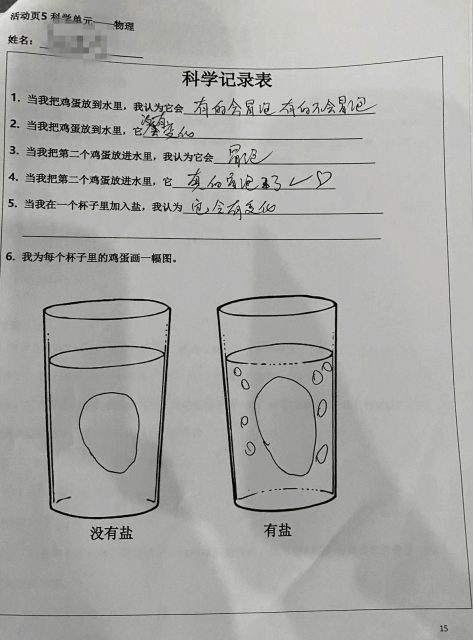 活动页5 科学单元——物理
姓名：
科学记录表
1. 当我把鸡蛋放到水里，我认为它会 有的会冒泡 有的不会冒泡
2. 当我把鸡蛋放到水里，它 没有变化
3. 当我把第二个鸡蛋放进水里，我认为它会 冒泡
4. 当我把第二个鸡蛋放进水里，它 真的冒泡了
5. 当我在一个杯子里加入盐，我认为 它会有变化
6. 我为每个杯子里的鸡蛋画一幅图。
没有盐
有盐
15